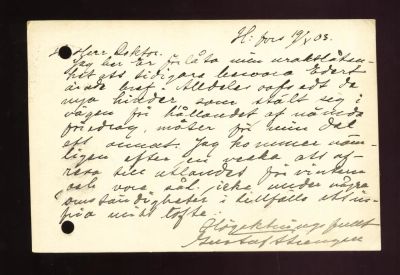 H:fors 19/X 03.
Herr Doktor.
Jag ber Er förlåta min uraktlåten-
het att tidigare besvara Edert
ärade bref. Alldeles oafsedt de
nya hinder, som stält sig i
vägen för hållandet af nämnda
föredrag, möter för min del
ett annat. Jag kommer näm-
ligen efter en vecka att af-
resa till utlandet för vintern
och vore sål. icke under några
omständigheter i tillfälle att in-
fria mitt löfte.
Högaktningsfullt
Gustaf Strengell